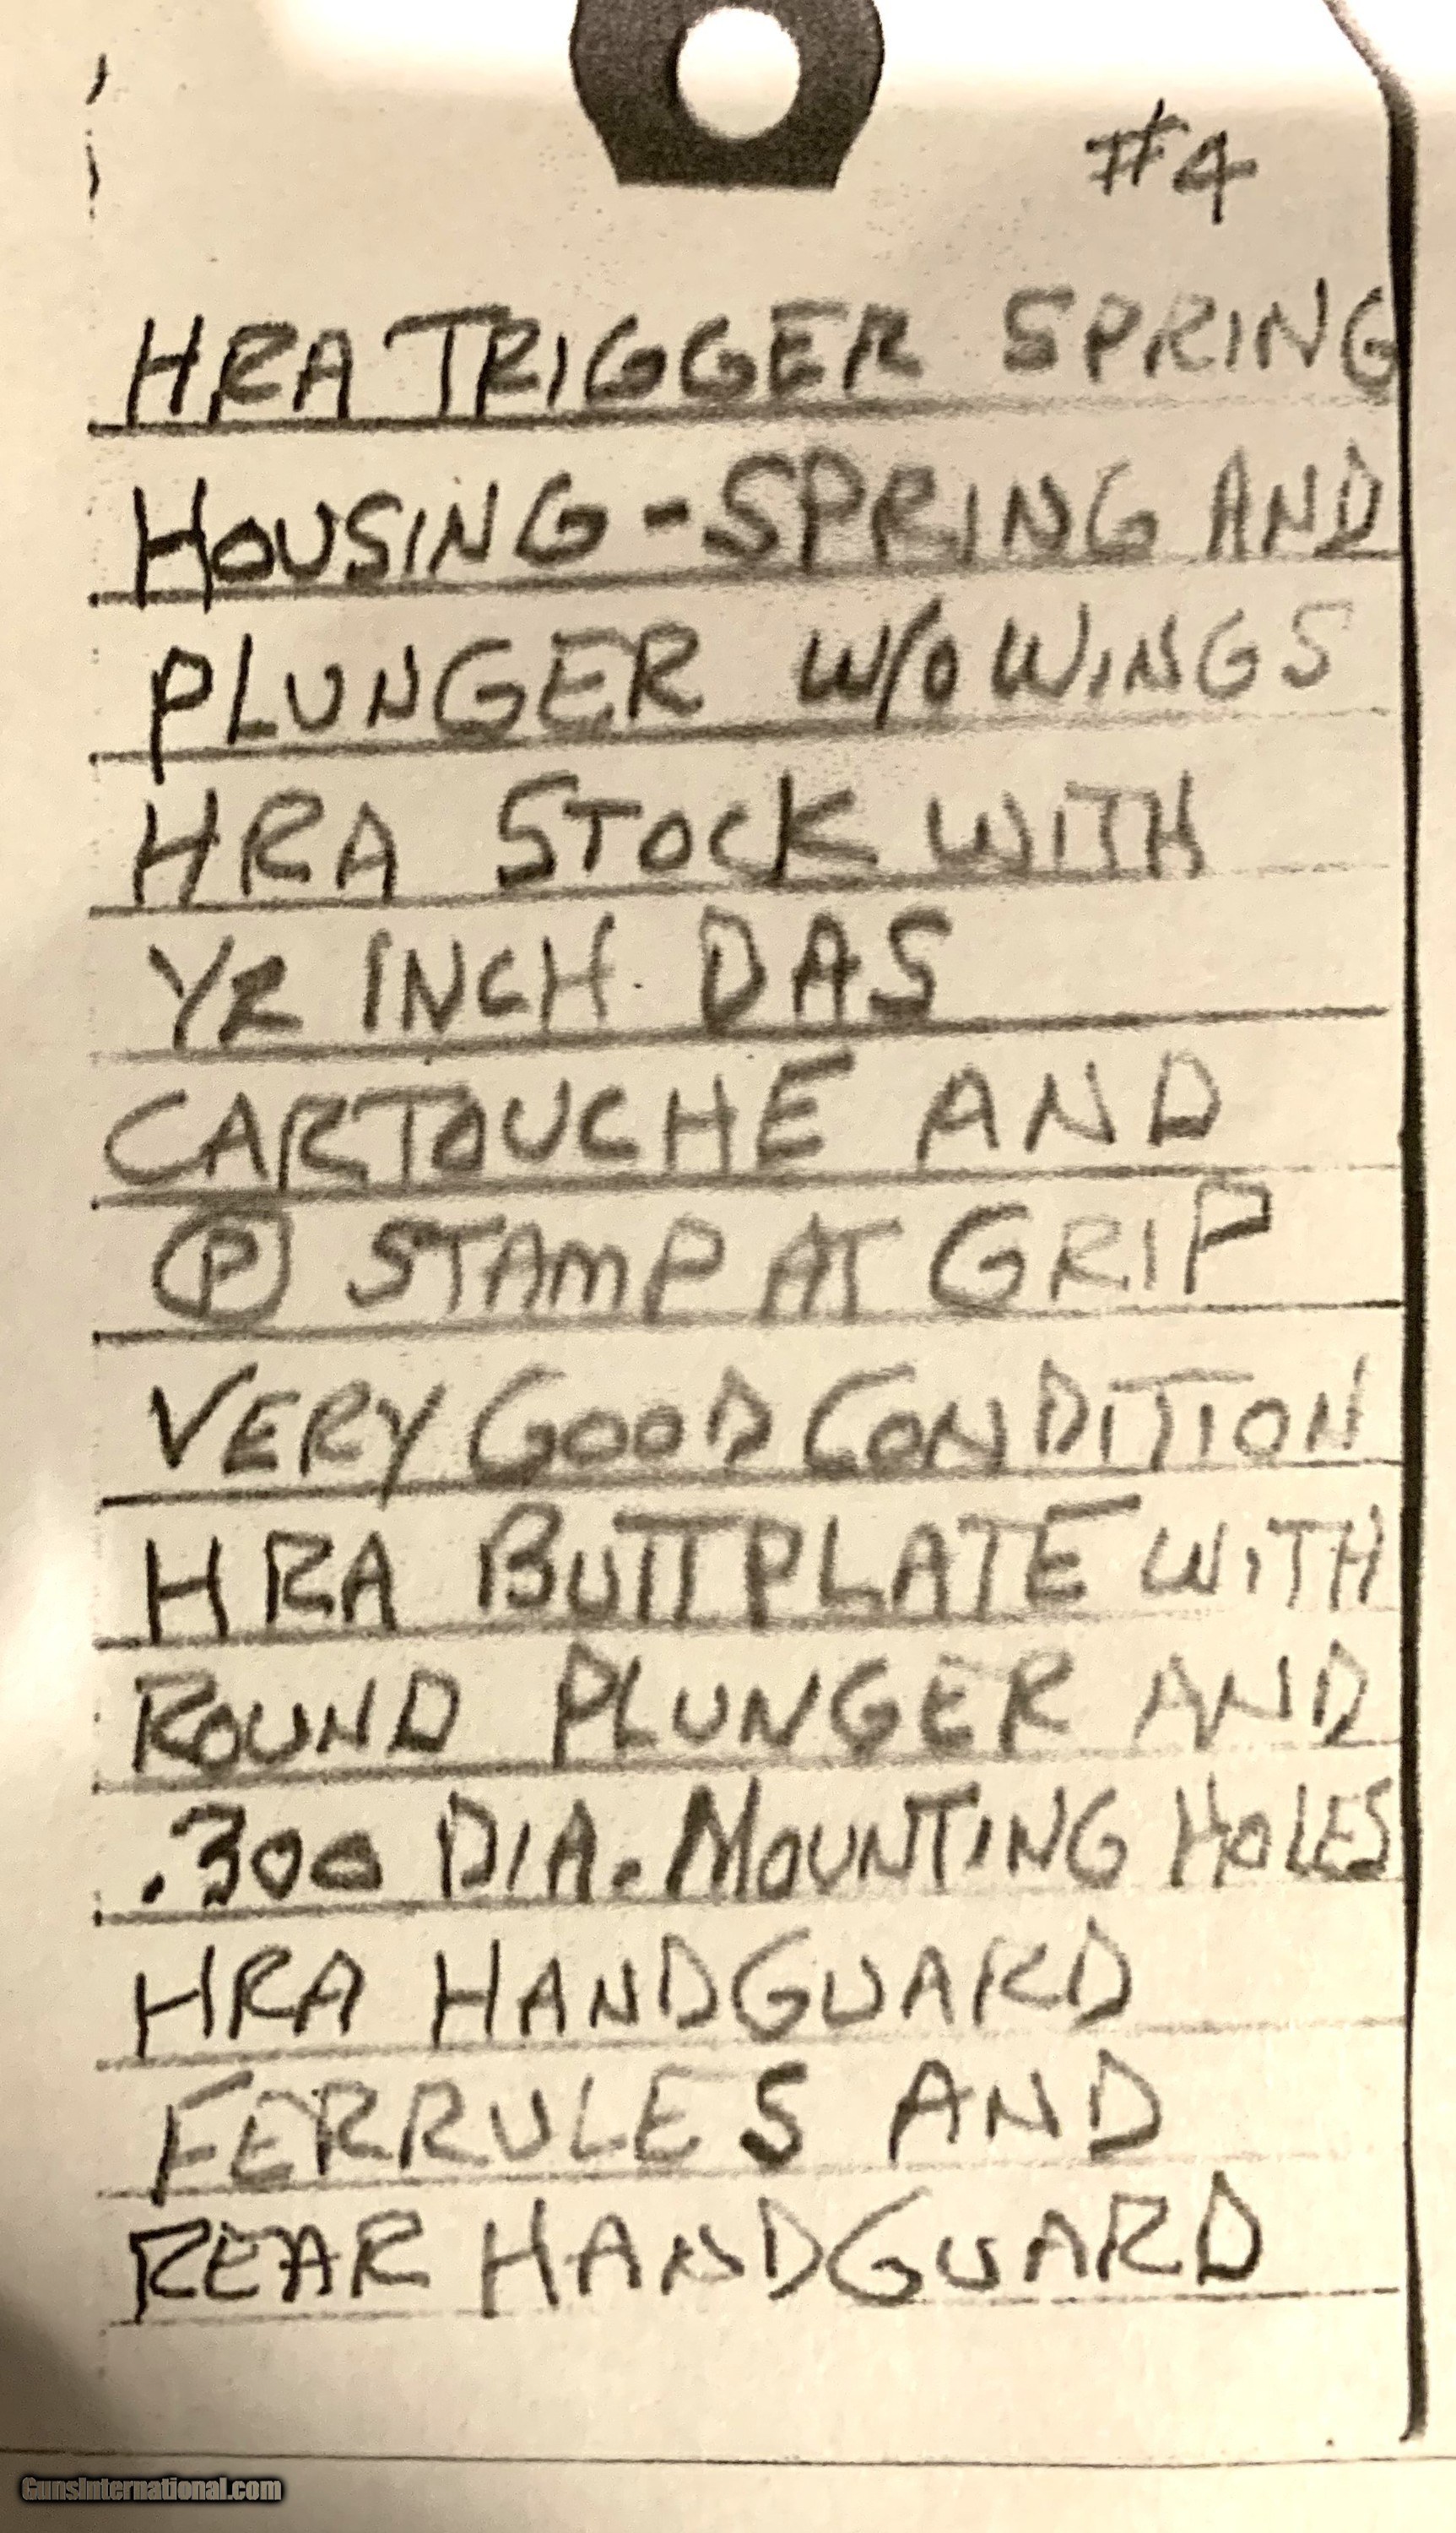 #4
HRA TRIGGER SPRING
HOUSING-SPRING AND
PLUNGER W/O WINGS
HRA STOCK WITH
YR INCH DAS
CARTOUCHE AND
Ⓟ STAMP AT GRIP
VERY GOOD CONDITION
HRA BUTTPLATE WITH
ROUND PLUNGER AND
.300 DIA. MOUNTING HOLES
HRA HANDGUARD
FERRULES AND
REAR HANDGUARD
GunsInternational.com